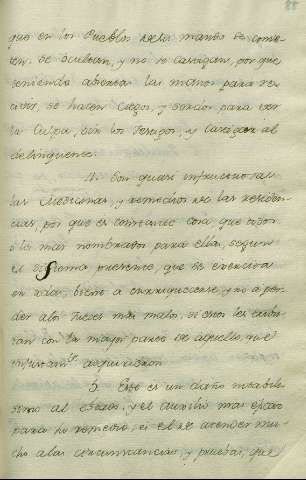 que en los Pueblos de su mando se come-
ten, se ocultan, y no se castigan, por que
teniendo abiertas las manos para re-
civir, se hacen ciegos, y sordos para ver
la Culpa, oir los testigos, y castigar al
delinquente.
4. Son quasi infructuosas
las y remedios de las residen-
cias, por que es constante cosa que todos
ô los mas nombrados para ellas, segun
el sistema presente, que se executa
en ellas, viene a enrriquecerse, y no a per-
der alos Jueces mas malos, si estos les contri-
con la mayor parte de aquello, que
injustam.te adquirieron
5. Este es un daño notabilis-
simo al estado, y el auxilio mas eficaz
para su remedio, es el de atender mu-
cho alas circunstancias, y pruebas, que